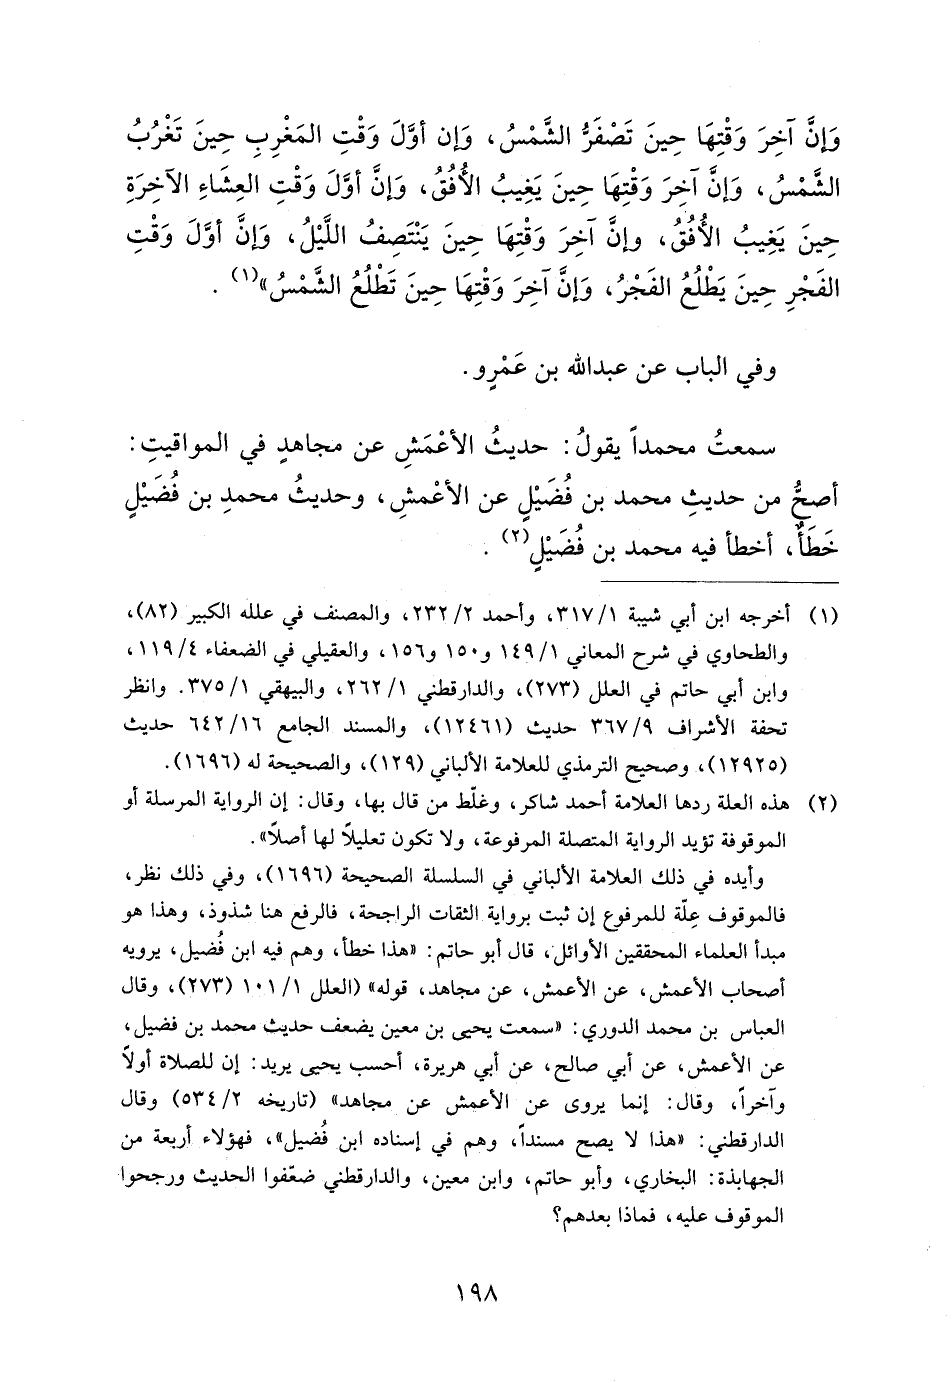 وَإِنَّ آخِرَ وَقْتِهَا حِينَ تَصْفَرُّ الشَّمْسُ، وَإِن أوَّلَ وَقْتِ المَغْرِبِ حِينَ تَغْرُبُ
الشَّمْسُ، وَإِنَّ آخِرَ وَقْتِهَا حِينَ يَغِيبُ الأُفُقُ، وَإِنَّ أوَّلَ وَقْتِ العِشَاءِ الآخِرَةِ
حِينَ يَغِيبُ الأُفُقُ، وإِنَّ آخِرَ وَقْتِهَا حِينَ يَنْتَصِفُ اللَّيْلُ، وَإِنَّ أوَّلَ وَقْتِ
الفَجْرِ حِينَ يَطْلُعُ الفَجْرُ، وَإِنَّ آخِرَ وَقْتِهَا حِينَ تَطْلُعُ الشَّمْسُ»(١) .
وفي الباب عن عبدالله بن عَمْرٍو.
سمعتُ محمداً يقولُ: حديثُ الأعْمَشِ عن مجاهدٍ في المواقيتِ:
أصحُّ من حديثِ محمد بن فُضَيْلٍ عن الأعْمشِ، وحديثُ محمدِ بن فُضَيْلٍ
خَطَأٌ، أخطأ فيه محمد بن فُضَيْلٍ(٢) .
(١) أخرجه ابن أبي شيبة ١/ ٣١٧، وأحمد ٢/ ٢٣٢، والمصنف في علله الكبير (٨٢)،
والطحاوي في شرح المعاني ١/ ١٤٩ و١٥٠ و١٥٦، والعقيلي في الضعفاء ٤/ ١١٩،
وابن أبي حاتم في العلل (٢٧٣)، والدارقطني ١/ ٢٦٢، والبيهقي ١/ ٣٧٥. وانظر
تحفة الأشراف ٩/ ٣٦٧ حديث (١٢٤٦١)، والمسند الجامع ١٦/ ٦٤٢ حديث
(١٢٩٢٥)، وصحيح الترمذي للعلامة الألباني (١٢٩)، والصحيحة له (١٦٩٦).
(٢) هذه العلة ردها العلامة أحمد شاكر، وغلّط من قال بها، وقال: إن الرواية المرسلة أو
الموقوفة تؤيد الرواية المتصلة المرفوعة، ولا تكون تعليلاً لها أصلاً».
وأيده في ذلك العلامة الألباني في السلسلة الصحيحة (١٦٩٦)، وفي ذلك نظر،
فالموقوف عِلّة للمرفوع إن ثبت برواية الثقات الراجحة، فالرفع هنا شذوذ، وهذا هو
مبدأ العلماء المحققين الأوائل، قال أبو حاتم: «هذا خطأ، وهم فيه ابن فُضيل، يرويه
أصحاب الأعمش، عن الأعمش، عن مجاهد، قوله» (العلل ١/ ١٠١ (٢٧٣)، وقال
العباس بن محمد الدوري: «سمعت يحيى بن معين يضعف حديث محمد بن فضيل،
عن الأعمش، عن أبي صالح، عن أبي هريرة، أحسب يحيى يريد: إن للصلاة أولاً
وآخراً، وقال: إنما يروى عن الأعمش عن مجاهد» (تاريخه ٢/ ٥٣٤) وقال
الدارقطني: «هذا لا يصح مسنداً، وهم في إسناده ابن فُضيل»، فهؤلاء أربعة من
الجهابذة: البخاري، وأبو حاتم، وابن معين، والدارقطني ضعّفوا الحديث ورجحوا
الموقوف عليه، فماذا بعدهم؟
١٩٨